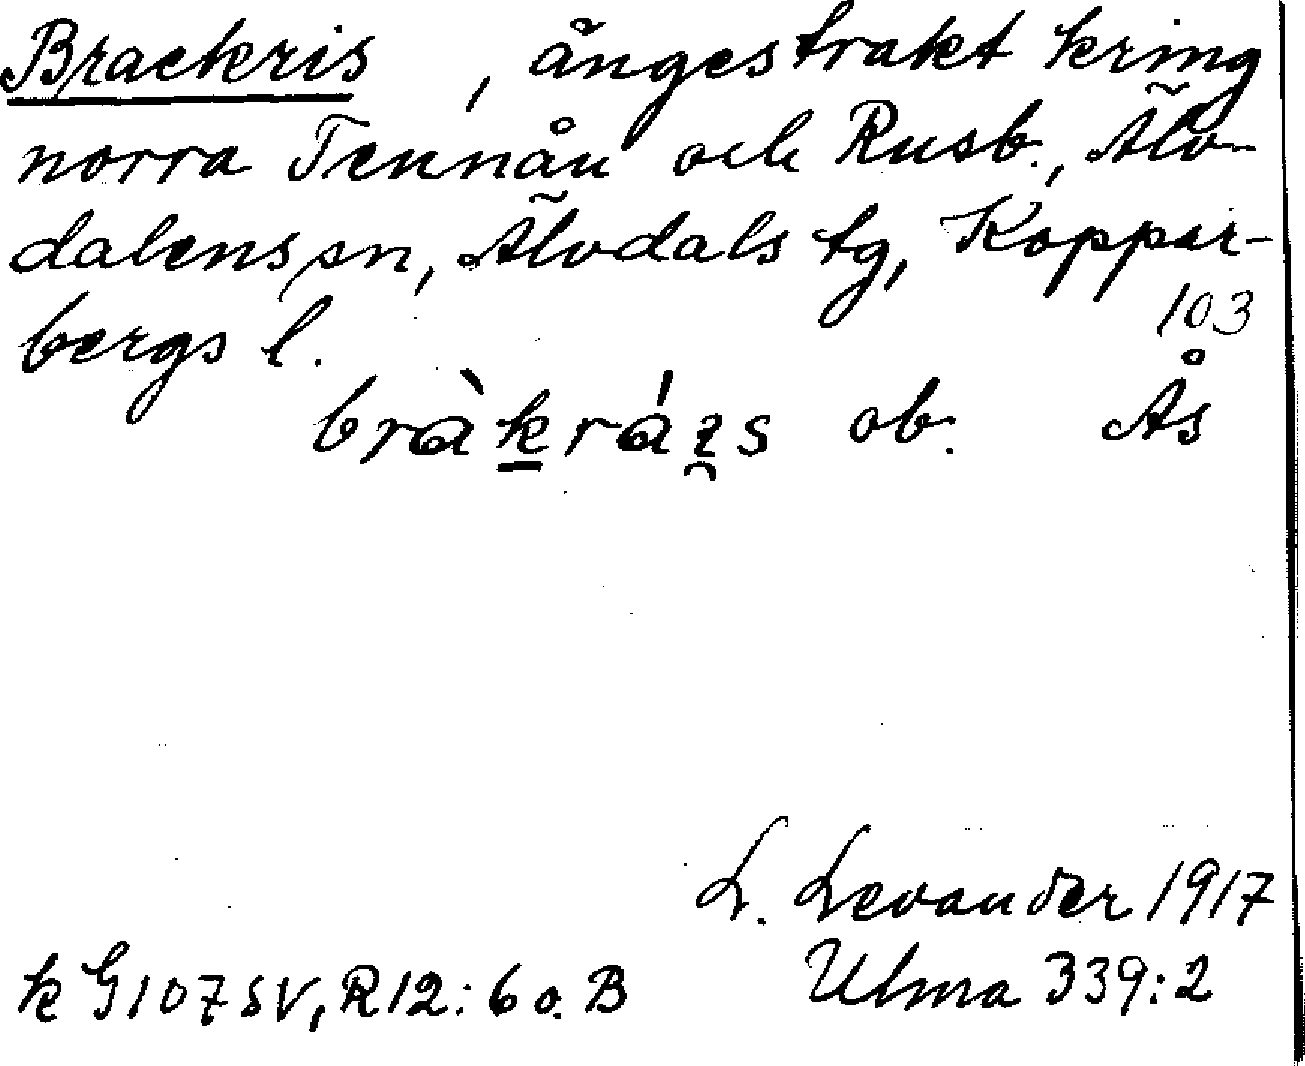 Brackris, ängestrakt kring
norra Tennån och Rusb., Älv-
dalens sn, Älvdals tg, Koppar-
bergs l.
103
bràkráɪ̯s ob. Ås
L. Levander 1917
k G107SV, R12:6 o. B
Ulma 339:2